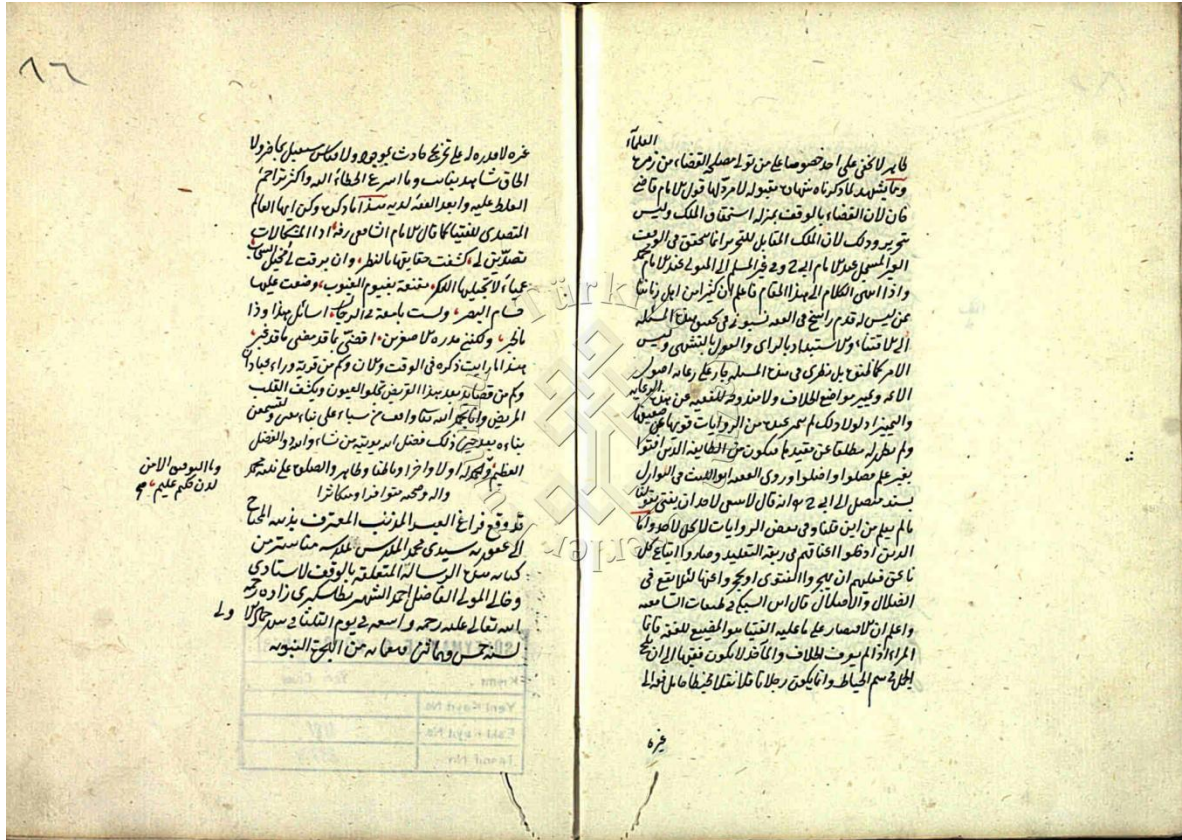 العلماء
ظاهر لا يخفى على احد خصوصا على من تولى مصلحى القضاء من زمرة
وما يشهد لما ذكرناه شهادة مقبولة لا مرد لها قول الامام قاضى
خان لان القضاء بالوقف بمنزلة استحقاق الملك وليس
بتحرير وذلك لان الملك المقابل للتحرير انما يتحقق فى الوقف
الغير المسجل عند الامام ابى ح وفى غير المسلم الى المتولى عند الامام محمد
واذا انتهى الكلام الى هذا المقام فاعلم ان كثيرا من اهل زماننا
ممن ليس له قدم راسخ فى الفقه نسبونى فى تحقيق هذه المسئلة
الى الاقتناء والاستبداد بالراى والقول بالتشهى وليس
الامر كما ظنوه بل نظرى فى هذه المسئلة جار على رعاية اصول
الائمة وتمييز مواضع الخلاف ولا مندوحة للفقيه عن هذه الرعاية
والتمييز اذ لولا ذلك لم يتميز عنده من الروايات قويها عن ضعيفها
ولم يظهر له مطلقها عن مقيدها فيكون من الطايفة الذين افتوا
بغير علم فضلوا واضلوا وروى الفقيه ابو الليث فى النوازل
بسند متصل الى ابى ح انه قال لا ينبغى لاحد ان يفتى بقولنا
مالم يعلم من اين قلنا وفى بعض الروايات لا يحل لاحد واما
الذين ادخلوا اعناقهم فى ربقة التقليد وصاروا اتباع كل
ناعق فعليهم ان يهجروا الفتوى او يهجروا عنها لئلا يقع فى
الضلال والاضلال قال ابن السبكى فى طبقات الشافعية
واعلم ان الاقتصار على ما عليه الفتيا هو المضيع للفقه فان
المرء اذا لم يعرف الخلاف والماخذ لا يكون فقيها الى ان يلج
الجمل فى سم الخياط وانما يكون رجلا ناقلا نقلا مخبطا حامل فقه الى
غيره
٨٦
غيره لا قدرة له على تخريج حادث بموجود ولا قياس مستقبل بحاضر ولا
الحاق شاهد بغائب وما اسرع الخطاء اليه واكثر تزاحم
الغلط عليه وابعد الفقه لديه هذا ما ذكره وكن ايها العالم
المتصدى للفتيا كما قال الامام الشافعى رفه اذا المشكلات
تصدين لى كشفت حقايقها بالنظر وان برقت فى مخيل السحاب
عمياء لا تجتليها الفكر مقنعة بغيوم الغيوب وضعت عليها
حسام البصر ولست بامعة فى الرجال اسائل هذا وذا
ما الخبر ولكننى مدره الاصغرين اقضى بما قد مضى ما قد غبر
هذا ما رايت ذكره فى الوقت والان وكم من قرية وراء عبادان
وكم من قصائد بعد هذا القريض تجلو العيون وتكشف القلب
المريض وانا بحمد الله كلما وافقت من سباء على نباء معى ولتسمعن
نباءه بعد حين ذلك فضل الله يؤتيه من يشاء والله ذو الفضل
العظيم والحمد لله اولا واخرا وباطنا وظاهرا والصلوة على نبيه محمد
واله وصحبه متوافرا ومتكاثرا
وما التوفيق الا من
لدن حكيم عليم
قد وقع فراغ العبد المذنب المعترف بذنبه المحتاج
الى عفو ربه سيدى محمد الملابس الملابسة مناستر من
كتابة هذه الرسالة المتعلقة بالوقف لاستادى
وخالى المولى الفاضل احمد الشهير بطاشكبرى زاده رحمة
الله تعالى عليه رحمة واسعة فى يوم الثلثا فى
لسنة خمس وثمانين وتسعمائة من الهجرة النبوية